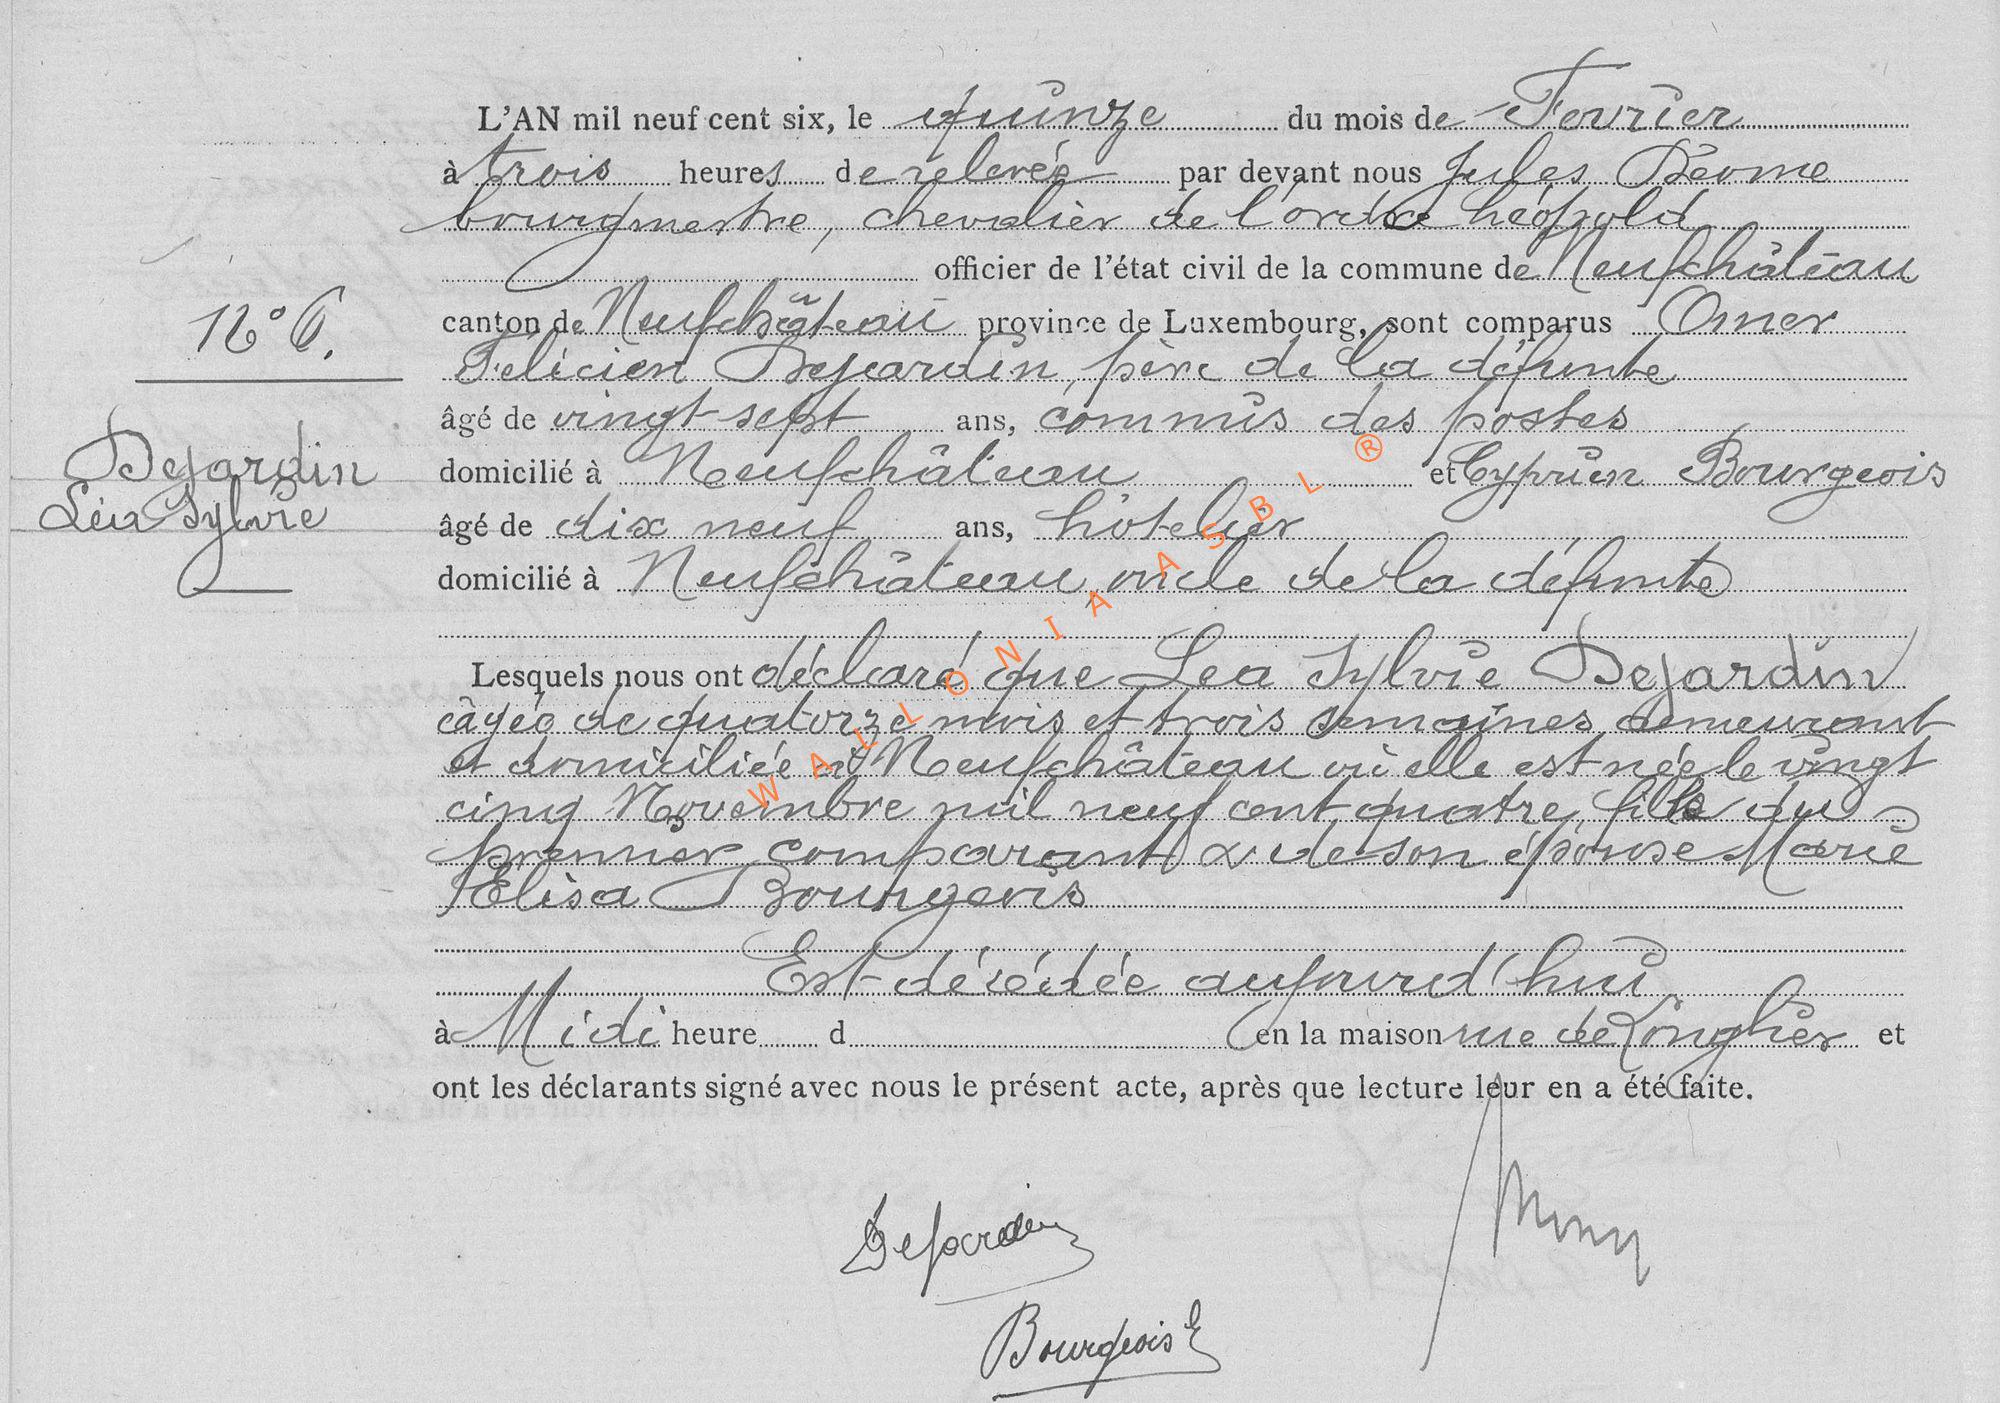 L'AN mil neuf cent six, le quinze du mois de Fevrier
à trois heures de relevée par devant nous Jules
bourgmestre, chevalier de l'ordre Léopold
officier de l'état civil de la commune de Neufchâteau
N° 6.
canton de Neufchâteau province de Luxembourg, sont comparus Omer
Félicien Dejardin, père de la défunte
âgé de vingt-sept ans, commis des postes
Dejardin
domicilié à Neufchâteau et Cyprien Bourgeois
Léa Sylvie
âgé de dix neuf ans, hôtelier
domicilié à Neufchâteau, oncle de la défunte
Lesquels nous ont déclaré que Lea Sylvie Dejardin
âgée de quatorze mois et trois semaines demeurant
et domiciliée à Neufchâteau où elle est née le vingt
cinq Novembre mil neuf cent quatre, fille du
premier comparant & de son épouse Marie
Elisa Bourgeois
Est décédée aujourd'hui
à Midi heure d en la maison rue de Longlier et
ont les déclarants signé avec nous le présent acte, après que lecture leur en a été faite.
Dejardin
Bourgeois
WALLONIA ASBL ®